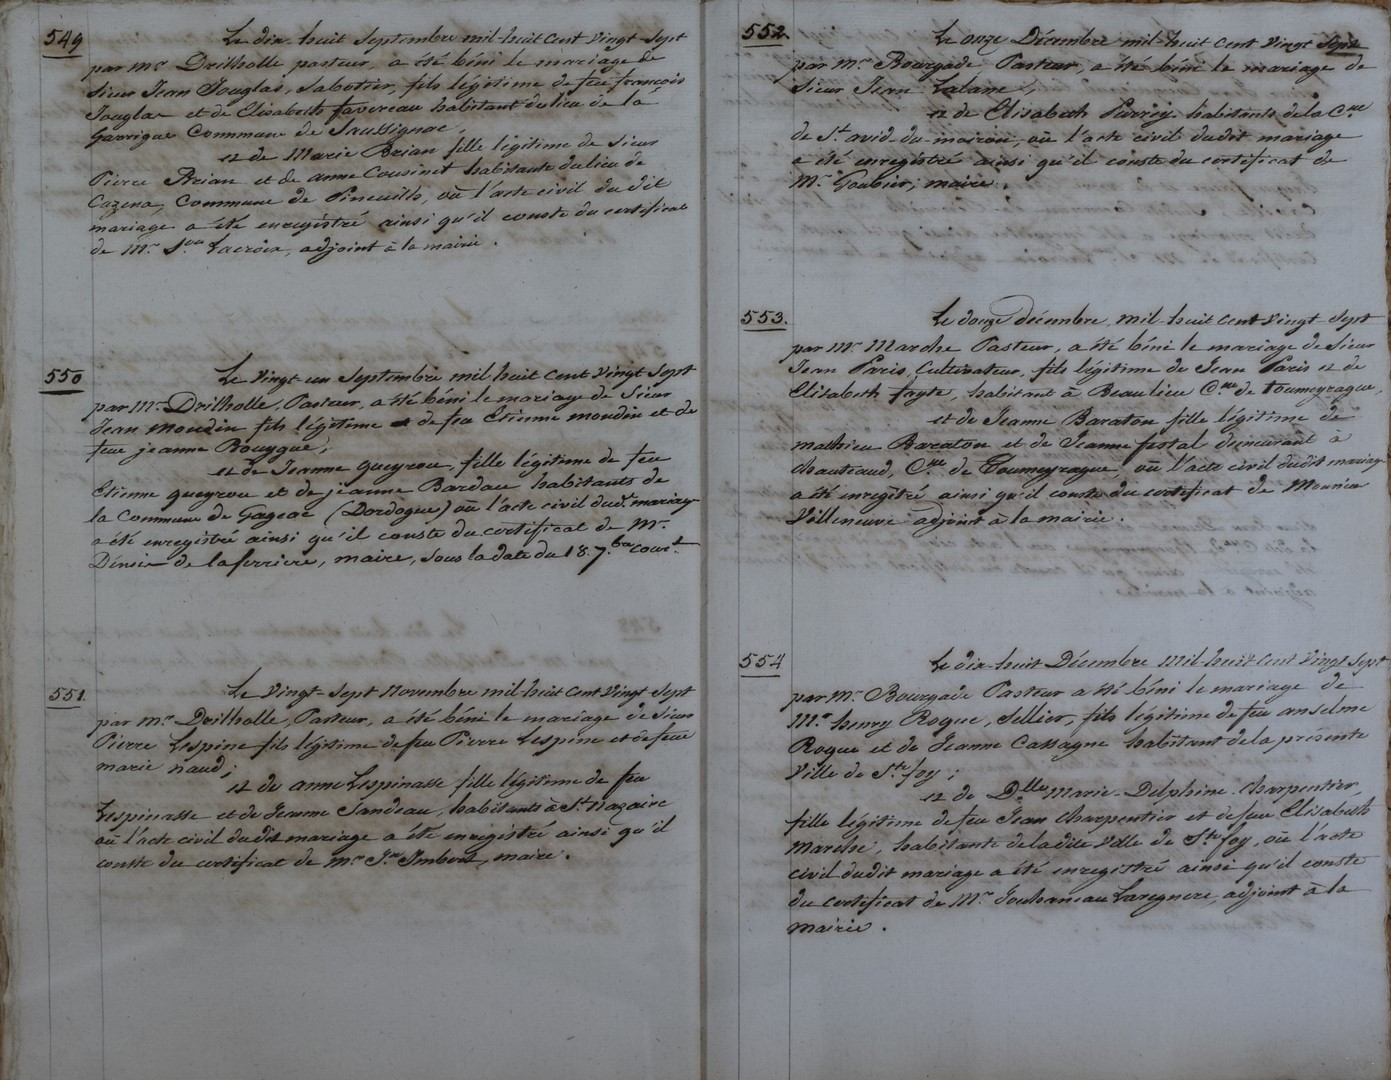 549
Le dix-huit Septembre mil-huit Cent Vingt Sept
par mr. Drilholle pasteur, a été béni le mariage de
Sieur Jean Jouglas, Sabotier, fils légitime de feu françois
Jouglas et de Elisabeth favereau habitant du lieu de la
Garrigue Commune de Saussignac,
et de Marie Brian fille légitime de Sieur
Pierre Brian et de anne Cousinet habitante du lieu de
Cazena, Commune de Pineuilh, où l'acte civil du dit
mariage a été enregistré ainsi qu'il conste du certificat
de Mr. Lacroix, adjoint à la mairie.
550
Le Vingt un Septembre mil huit Cent Vingt Sept
par Mr. Drilholle, Pasteur, a été béni le mariage de Sieur
Jean moudin fils légitime de feu Etienne moudin et de
feue jeanne Bouygue,
et de Jeanne queyrou, fille légitime de feu
Etienne queyrou et de jeanne Bardau habitants de
la Commune de Gageac (Dordogne) où l'acte civil dud.t mariage
a été enregistré ainsi qu'il conste du certificat de Mr.
de laferriere, maire, Sous la date du 18 7.bre cour.t
551.
Le Vingt-Sept Novembre mil-huit Cent Vingt Sept
par mr. Drilholle, Pasteur, a été béni le mariage de Sieur
Pierre Lespine fils légitime de feu Pierre Lespine et de feue
marie naud;
et de anne Lespinasse fille légitime de feu
Lespinasse et de Jeanne Jandeau, habitants à St. Nazaire
où l'acte civil du dit mariage a été enregistré ainsi qu'il
conste du certificat de mr. Jn. Imbert, maire.
552.
Le onze Décembre mil-huit Cent Vingt Sept
par mr. Bourgade Pasteur, a été béni le mariage de
Sieur Jean Lalane,
et de Elisabeth habitants de la Cne
de St. avid-du-moiron, où l'acte civil du dit mariage
a été enregistré ainsi qu'il conste du certificat de
Mr. Goubier, maire.
553.
Le douze décembre, mil-huit Cent Vingt-Sept
par Mr. Marche Pasteur, a été béni le mariage de Sieur
Jean Paris, Cultivateur, fils légitime de Jean Paris et de
Elisabeth fayte, habitant à Beaulieu Cne de toumeyrague,
et de Jeanne Baraton fille légitime de
mathieu Baraton et de Jeanne fostal demeurant à
Chauteaud, Cne de Toumeyrague, où l'acte civil du dit mariage
a été enregistré ainsi qu'il conste du certificat de Meunier
Villeneuve adjoint à la mairie.
554
Le dix-huit Décembre mil-huit Cent Vingt Sept
par mr. Bourgade Pasteur a été béni le mariage de
Mr. henry Roque, Sellier, fils légitime de feu anselme
Roque et de Jeanne Cassagne habitant de la présente
Ville de Ste foy;
et de Dlle Marie-Delphine Charpentier,
fille légitime de feu Jean Charpentier et de feue Elisabeth
Marche, habitante de la dite Ville de Ste foy, où l'acte
civil du dit mariage a été enregistré ainsi qu'il conste
du certificat de Mr. Jouhanneau Laregnere, adjoint à la
mairie.